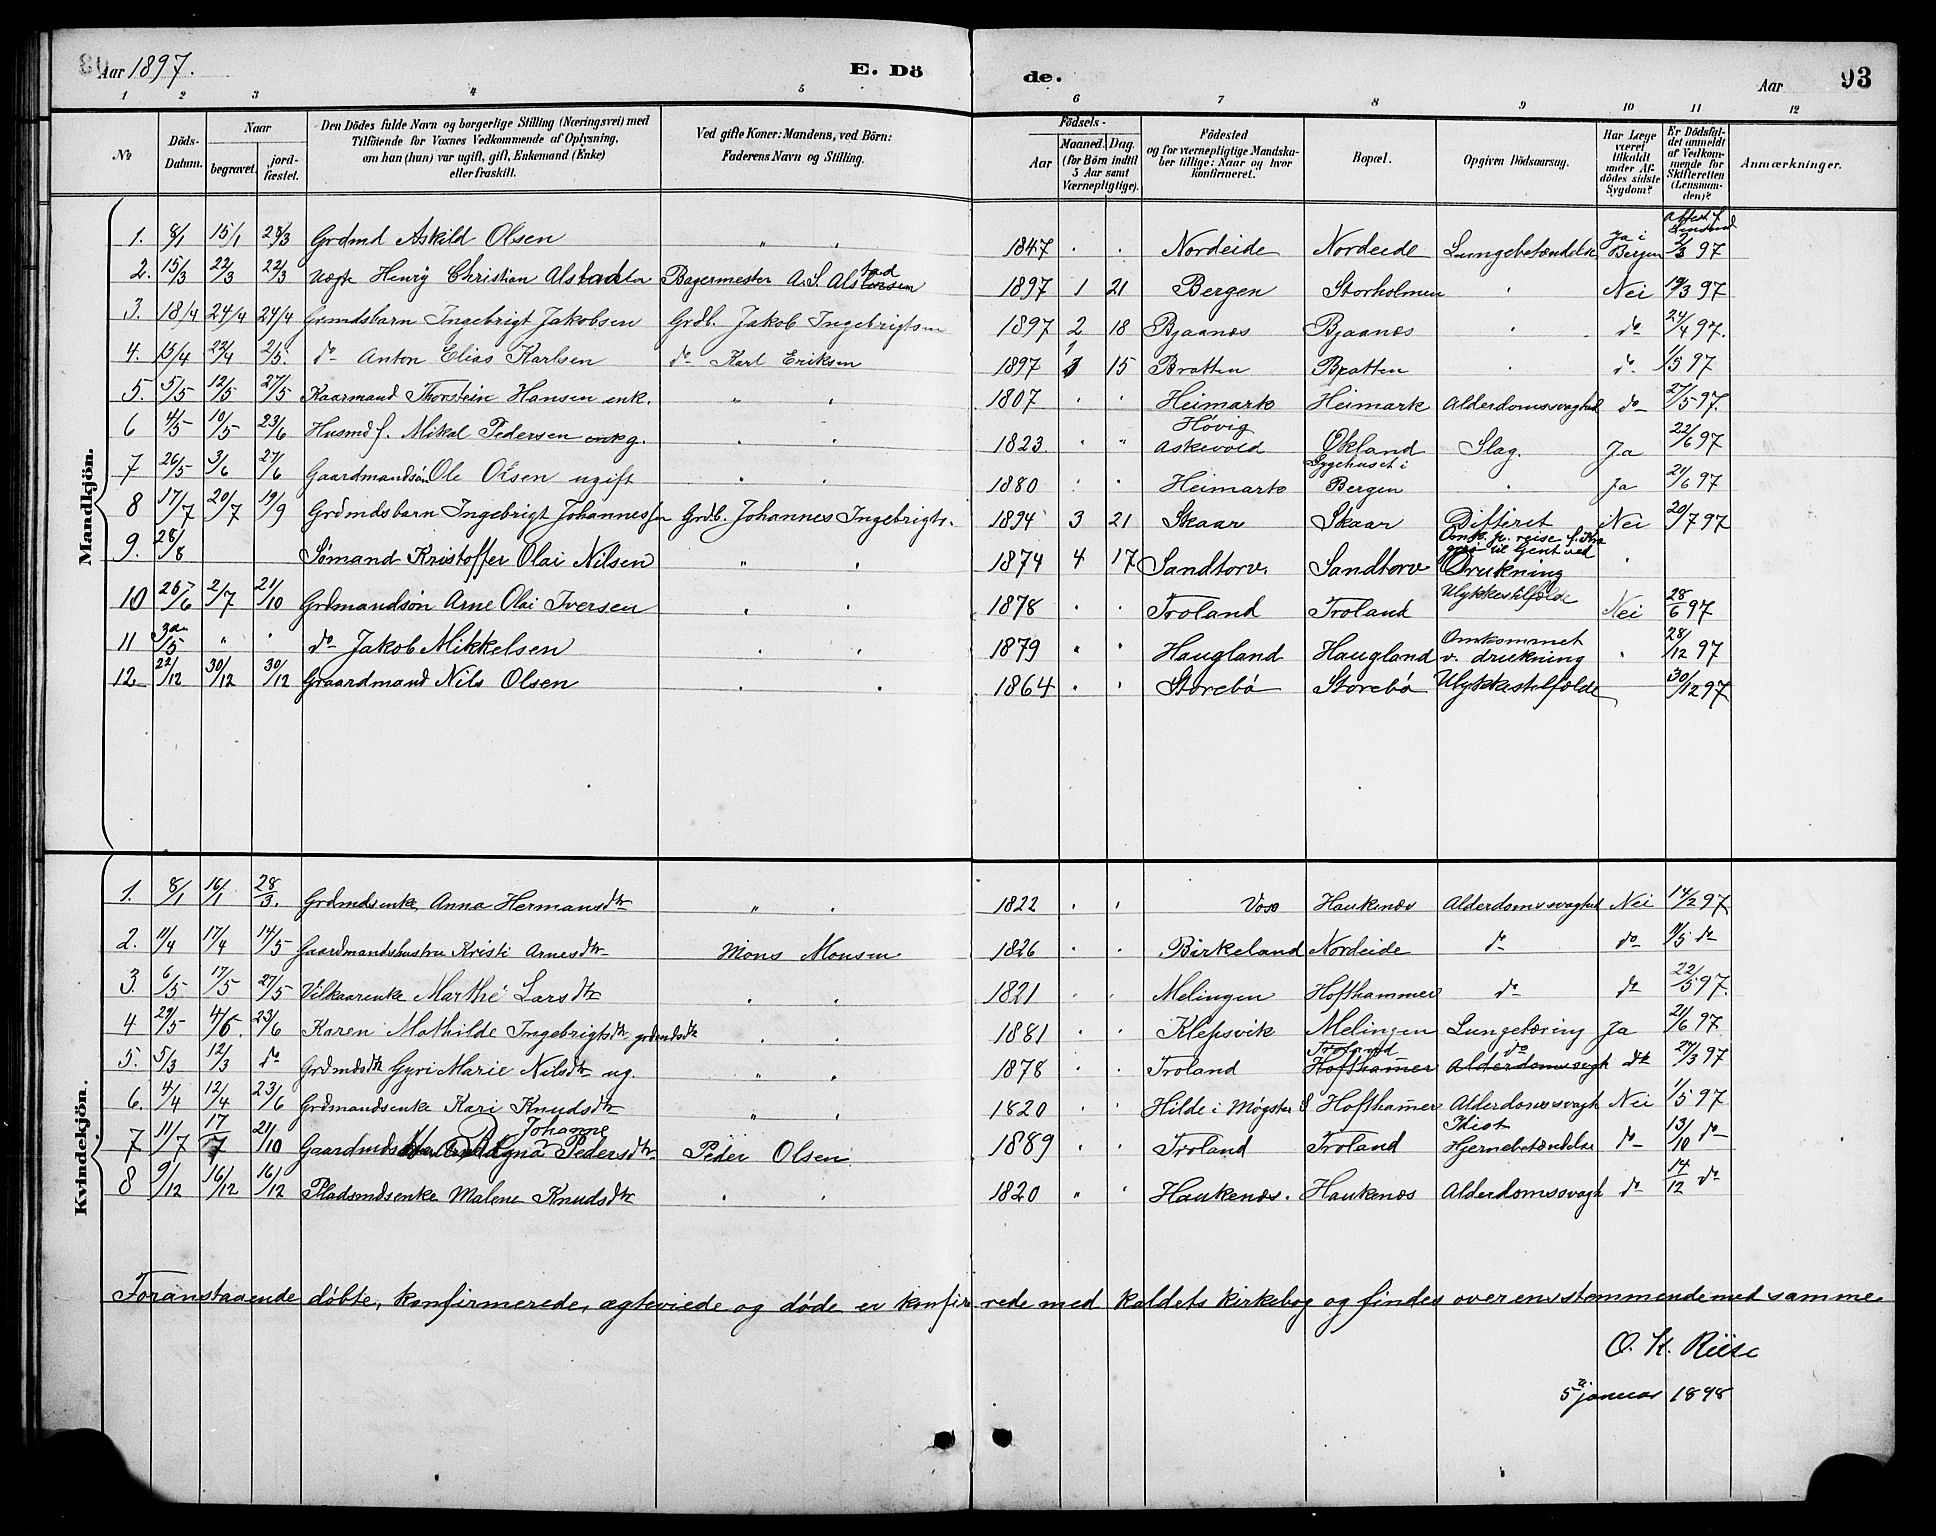 Aar 1897. E. Dö de. Aar 93
1 2 3 4 5 6 7 8 9 10 11 12
No. Döds-Datum. Naar begravet. jord-fæstet. Den Dödes fulde Navn og borgerlige Stilling (Næringsvei) med Tilföiende för Voxnes Vedkommende af Oplysning, om han (hun) var ugift, gift, Enkemand (Enke) eller fraskilt. Ved gifte Koner: Mandens, ved Börn: Faderens Navn og Stilling. Födsels- Aar Maaned. Dag. (for Börn indtil 5 Aar samt Værnepligtige). Födested og for værnepligtige Mandskaber tillige: Naar og hvor konfirmeret. Bopæl. Opgiven Dödsaarsag. Har Læge været tilkaldt under Afdödes sidste Sygdom? Er Dödsfaldet anmeldt af Vedkommende for Skifteretten (Lensmanden)? Anmærkninger.
Mandkjön.
1. 8/1 15/1 28/3 Grdmd Askild Olsen " " 1847 " " Nordeide Nordeide Lungebetændelse Ja i Bergen 2/3 97
2. 15/3 22/3 22/3 Henry Christian Alstad Bagermester A. S. Alstad 1897 1 21 Bergen Storholmen " Nei 19/3 97
3. 18/4 24/4 24/4 Grmdsbarn Ingebrigt Jakobsen Grdb. Jakob Ingebrigtsen 1897 2 18 Bjaanæs Bjaanæs " do 24/4 97.
4. 15/4 23/4 2/5. do Anton Elias Karlsen do Karl Eriksen 1897 1 15 Bratten Bratten " do 1/5 97
5. 5/5 12/5 27/5 Kaarmand Thorstein Hansen enk. " " 1807 " " Heimark Heimark Alderdomssvaghed do 27/5 97.
6 4/5 10/5 23/6 Husmd f. Mikal Pedersen enkg. " " 1823. " " Høvig Askevold Økland Slag. Ja 22/6 97
7 26/5 3/6 27/6 Gaardmandsön Ole Olsen ugift " " 1880 " " Heimark Sygehuset i Bergen " Ja 21/6 97
8 17/7 20/7 19/9 Grdmdsbarn Ingebrigt Johannessen Grdb. Johannes Ingebrigts. 1894 3 21 Skaar Skaar Difterit Nei 20/7 97
9. 28/8 Sømand Kristoffer Olai Nilsen " " 1874 4 17 Sandtorv. Sandtorv Omk. p. reise f. til Gent ved Drukning "
10 26/6 2/7 21/10 Grdmandsön Arne Olai Iversen " " 1878 " " Troland Troland Ulykkestilfælde Nei 28/6 97
11 3/5 " " do Jakob Mikkelsen " " 1879 " " Haugland Haugland Omkommet v. drukning " 28/12 97
12 22/12 30/12 30/12 Gaardmand Nils Olsen " " 1864 " " Storebø Storebø Ulykkestilfælde 30/12 97
Kvindekjön.
1. 8/1 16/1 28/3. Grdmdsenke Anna Hermansdtr " " 1822 " " Voss Haukenæs Alderdomssvaghed Nei 14/2 97
2. 11/4 17/4 14/5 Gaardmandshustru Kristi Arnesdtr Mons Monsen 1826 " " Birkeland Nordeide do do 11/5 do
3. 6/5 17/5 27/5 Vilkaarenke Marthe Larsdtr " " 1821 " " Melingen Hofthammer do do 22/5 97.
4 29/5 4/6. 23/6 Karen Mathilde Ingebrigtsdtr grdmdsdtr " " 1881 " " Klepsvik Melingen Lungetæring Ja 21/6 97
5. 5/3 12/3 do Grdmdsdtr Gyri Marie Nilsdtr ug. " " 1878 " " Troland Troland Hofthammer do Alderdomssvagh do 27/3 97
6. 4/4 12/4 23/6 Grdmandsenke Kari Knudsdtr " " 1820 " " Hilde i Møgster S Hofthammer Alderdomssvagh Nei 1/5 97
7 11/7 17/7 21/10 Gaardmds Johanne Agna Pedersdtr Peder Olsen 1889 " " Troland Troland Idiot Hjernebetændelse do 13/10 do
8 9/12 16/12 16/12 Pladsmdsenke Malene Knudsdtr " " 1820 " " Haukenæs. Haukenæs Alderdomssvagh do 14/12 do
Foranstaaende døbte, konfirmerede, ægteviede og døde er konfirerede med kaldets kirkebog og findes overensstemmende med samme
O. K. Riise
5 januar 1898